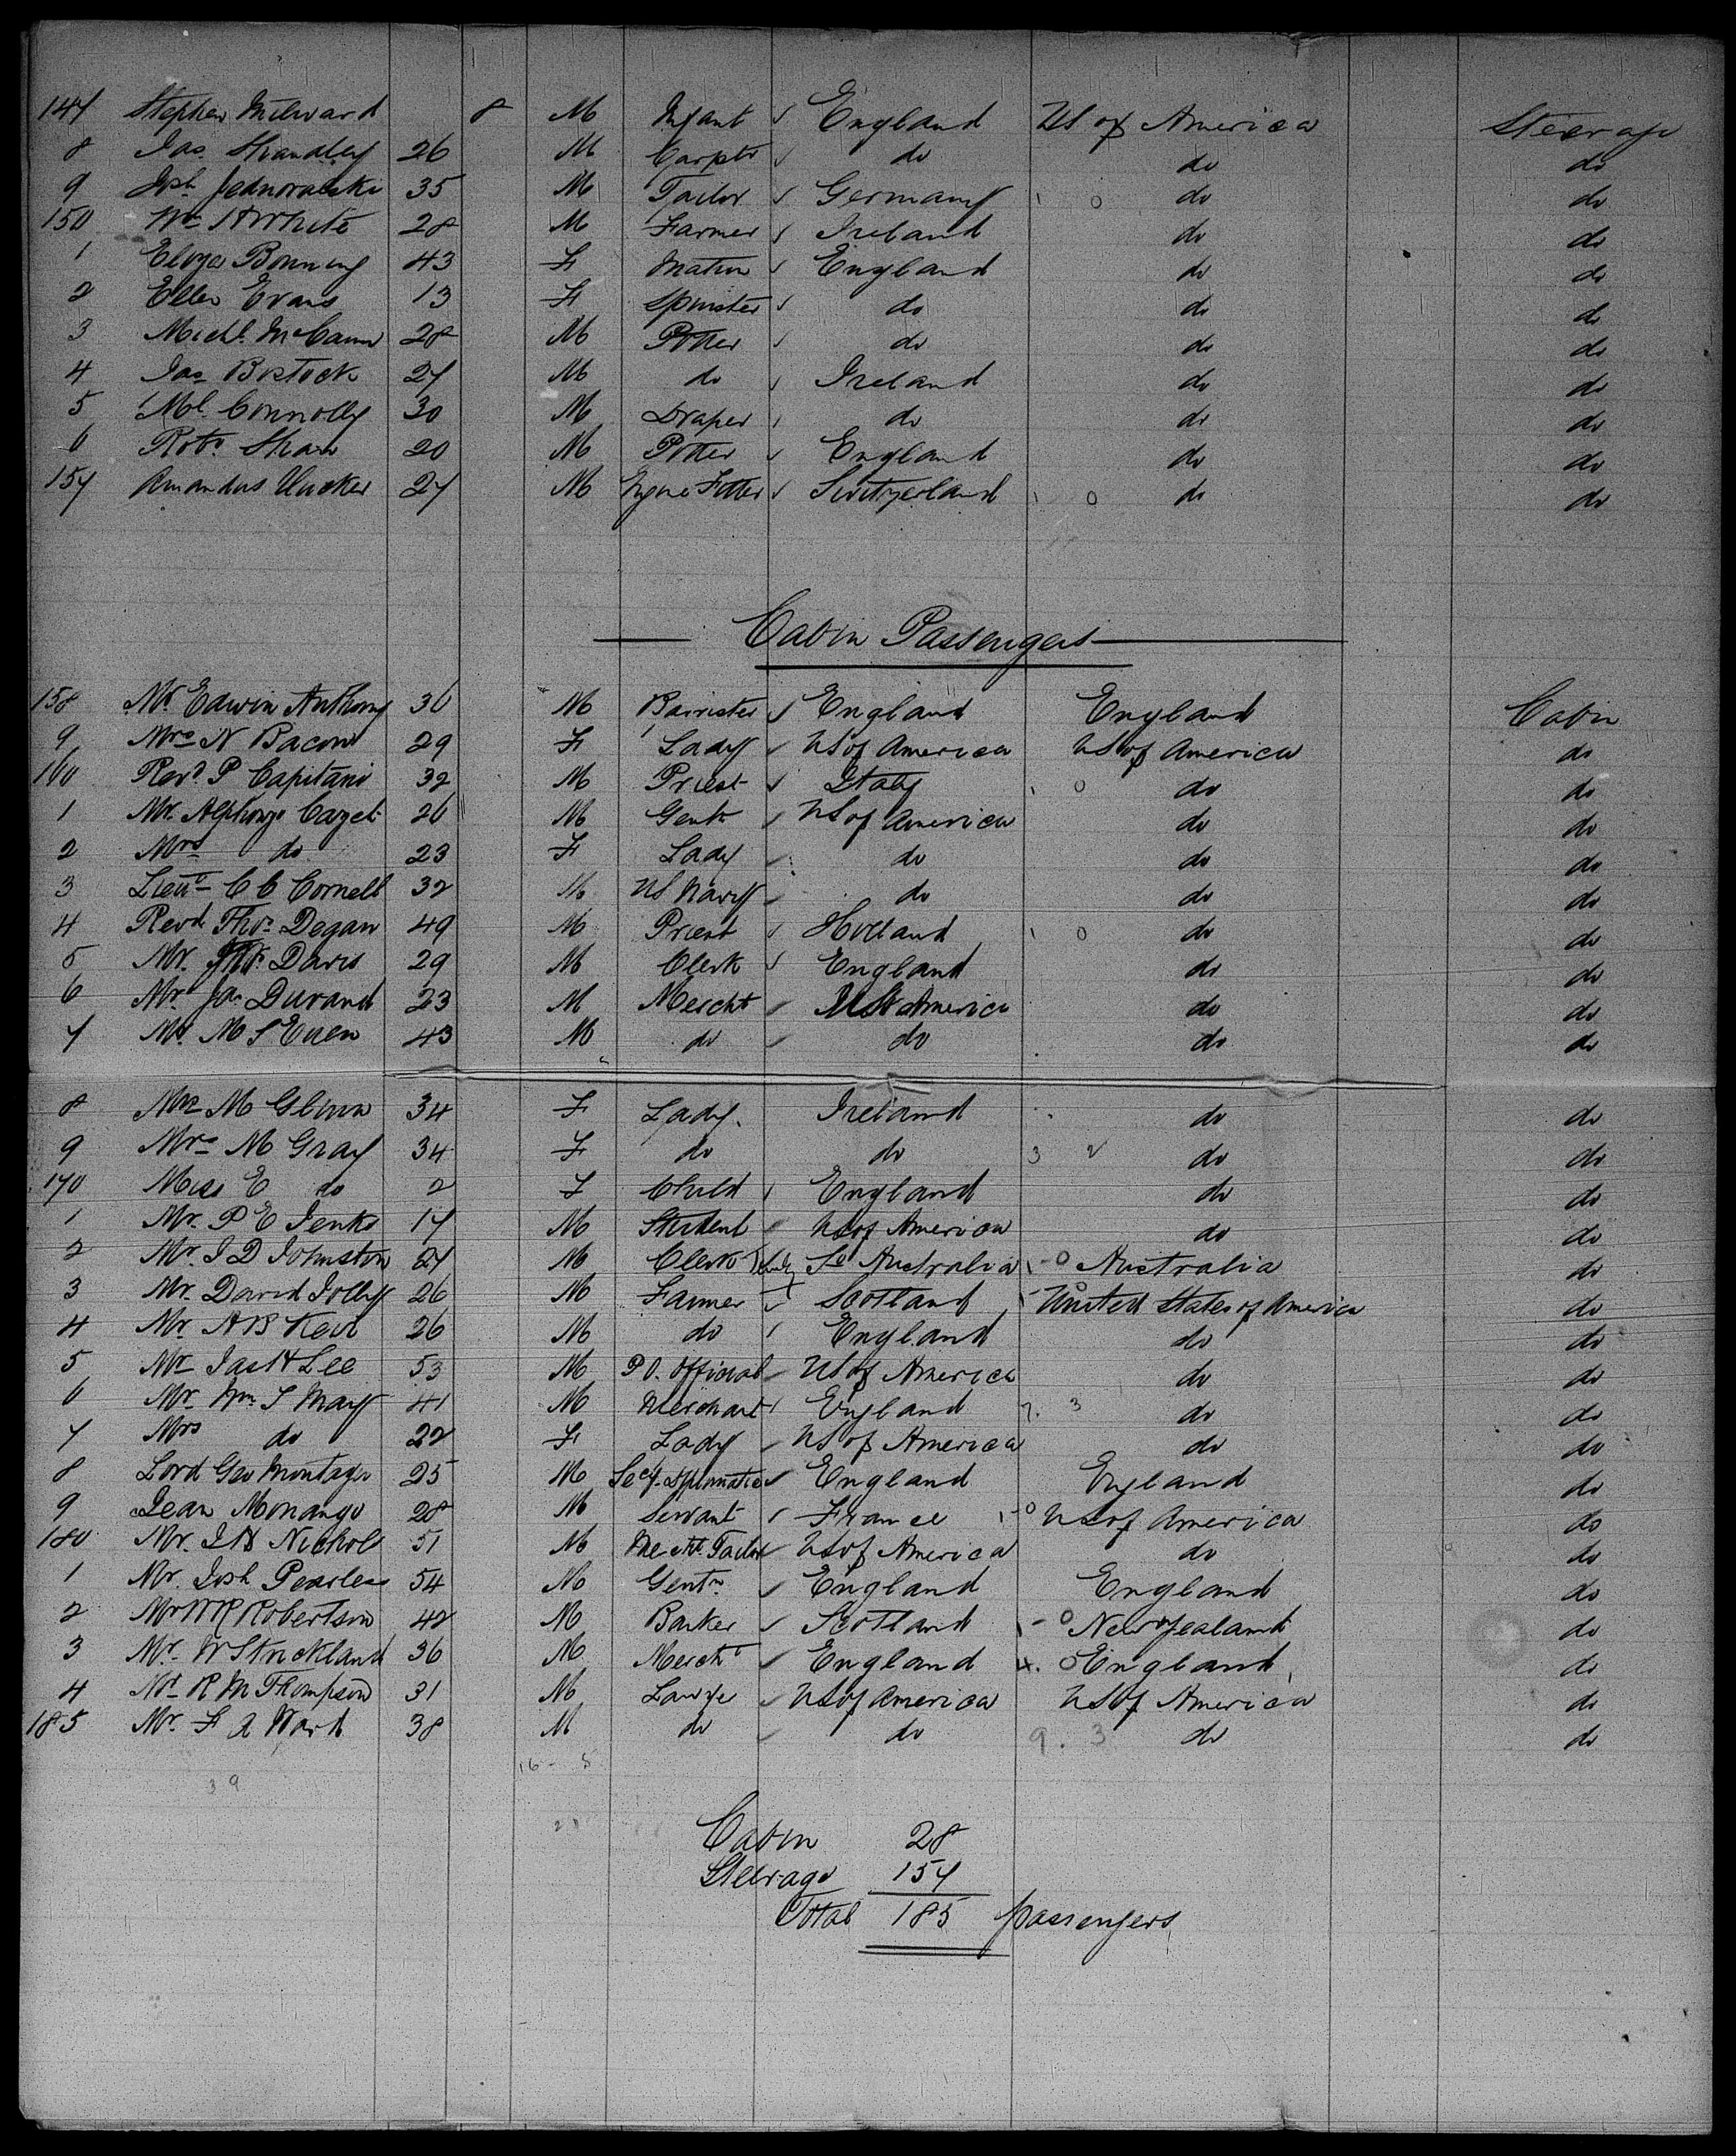 147 Stephen Milward 8 M Infant England US of America Steerage
8 Jas. Shandley 26 M Carptr do do do
9 Jph Jednoralski 35 M Tailor Germany 1 0 do do
150 Wm H White 28 M Farmer Ireland do do
1 Eloza Bonning 43 F Matron England do do
2 Ellen Evans 13 F Spinster do do do
3 Michl. McCann 28 M Potter do do do
4 Jas Bostock 27 M do Ireland do do
5 Ml. Connolly 30 M Draper do do do
6 Robt. Shaw 20 M Potter England do do
157 Amandus Uucker 27 M Engine Fitter Switzerland 1 0 do do
Cabin Passengers
158 Mr. Edwin Anthony 36 M Barrister England England Cabin
9 Mrs N Bacon 29 F Lady US of America US of America do
160 Revd. P Capitani 32 M Priest Italy 1 0 do do
1 Mr. Alphonze Cazet 26 M Gentn US of America do do
2 Mrs do 23 F Lady do do do
3 Lieut C C Cornell 32 M US Navy do do do
4 Revd Thos Degan 49 M Priest Holland 1 0 do do
5 Mr. Thos. Davis 29 M Clerk England do do
6 Mr. Jas Durand 23 M Mercht US America do do
7 Mr. M S Euen 43 M do do do do
8 Mrs M Glinn 34 F Lady. Ireland do do
9 Mrs M Gray 34 F do do 3 2 do do
170 Miss E do 2 F Child England do do
1 Mr. P E Jenks 17 M Student US of America do do
2 Mr. J D Johnston 27 M Clerk So Australia 1-0 Australia do
3 Mr. David Jolly 26 M Farmer Scotland 1-0 United States of America do
4 Mr A B Keir 26 M do England do do
5 Mr Jas H Lee 53 M P O. Official US of America do do
6 Mr. Wm. S May 41 M Merchant England 7. 3 do do
7 Mrs do 22 F Lady US of America do do
8 Lord Geo Montagu 25 M Secy. Diplomatic England England do
9 Jean Monango 28 M Servant France 1-0 US of America do
180 Mr. J H Nichols 51 M Mercht. Tailor US of America do do
1 Mr. Josh Pearless 54 M Gentn England England do
2 Mr W R Robertson 42 M Banker Scotland 1-0 New Zealand do
3 Mr. W Strickland 36 M Mercht England 4. 0 England do
4 Mr R M Thompson 31 M Lawyer US of America US of America do
185 Mr. F A Ward 38 M do do 9. 3 do do
16 - 5
39
Cabin 28
Steerage 157
Total 185 passengers